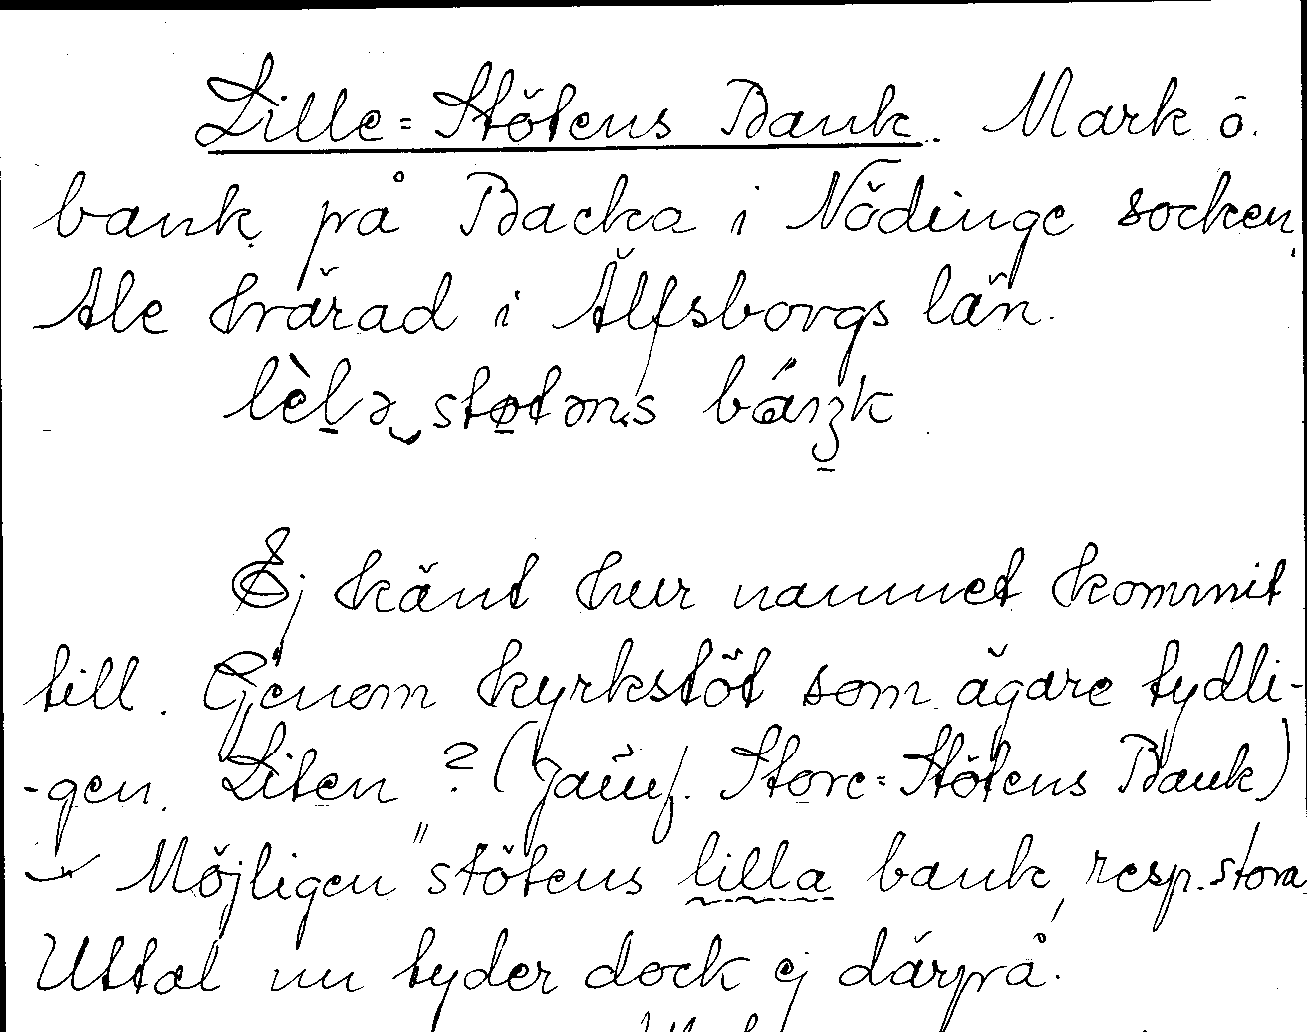 Lille=Stötens Bank. Mark o.
bank på Backa i Nödinge socken,
Ale härad i Älfsborgs län.
lèlə støtəns báŋk
Ej känt hur namnet kommit
till. Genom kyrkstöt som ägare tydli-
-gen. Liten? (Jämf. Store=Stötens Bank)
Möjligen "stötens lilla bank, resp. stora
Uttal nu tyder dock ej därpå.